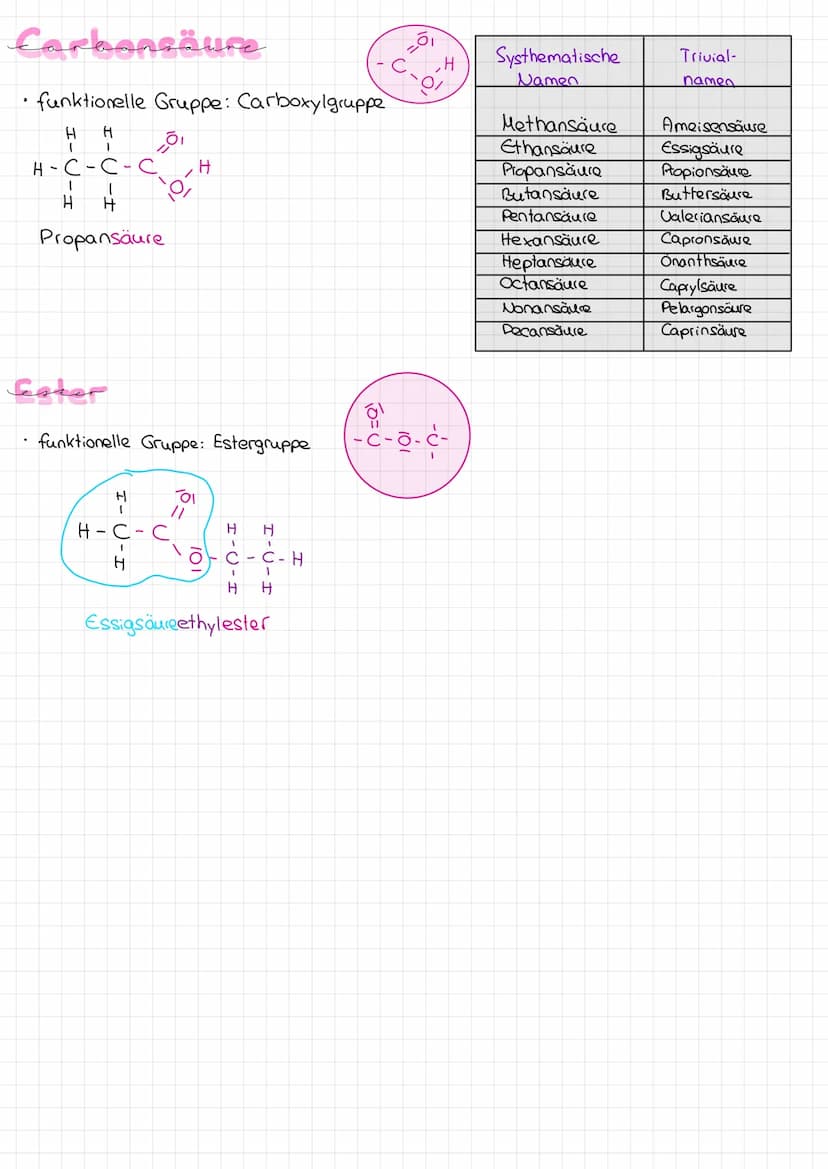 Carbonsäure
· funktionelle Gruppe: Carboxylgruppe
- C
O
O
H
H H
O
H - C - C - C
H
O
H H
Propansäure
Systhematische Namen Trivial-namen
Methansäure Ameisensäure
Ethansäure Essigsäure
Propansäure Propionsäure
Butansäure Buttersäure
Pentansäure Valeriansäure
Hexansäure Capronsäure
Heptansäure Önanthsäure
Octansäure Caprylsäure
Nonansäure Pelargonsäure
Decansäure Caprinsäure
Ester
· funktionelle Gruppe: Estergruppe
O
- C - O - C -
H
O
H - C - C
H H
H
O - C - C - H
H H
Essigsäureethylester